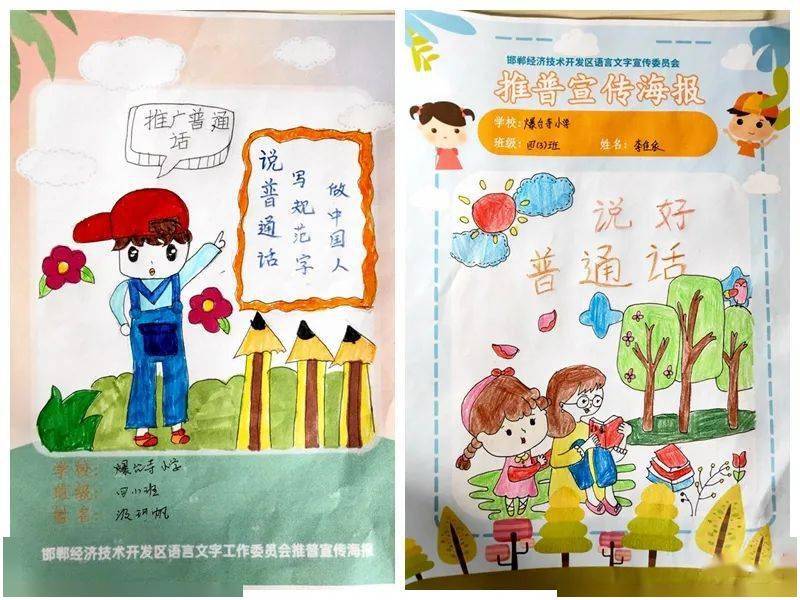 推广普通
话
说普通话
写规范字
做中国人
学校：爆台寺小学
班级：四(1)班
署名：
邯郸经济技术开发区语言文字工作委员会推普宣传海报
邯郸经济技术开发区语言文字宣传委员会
推普宣传海报
学校：爆台寺小学
班级：四(3)班 姓名：
说好
普通话